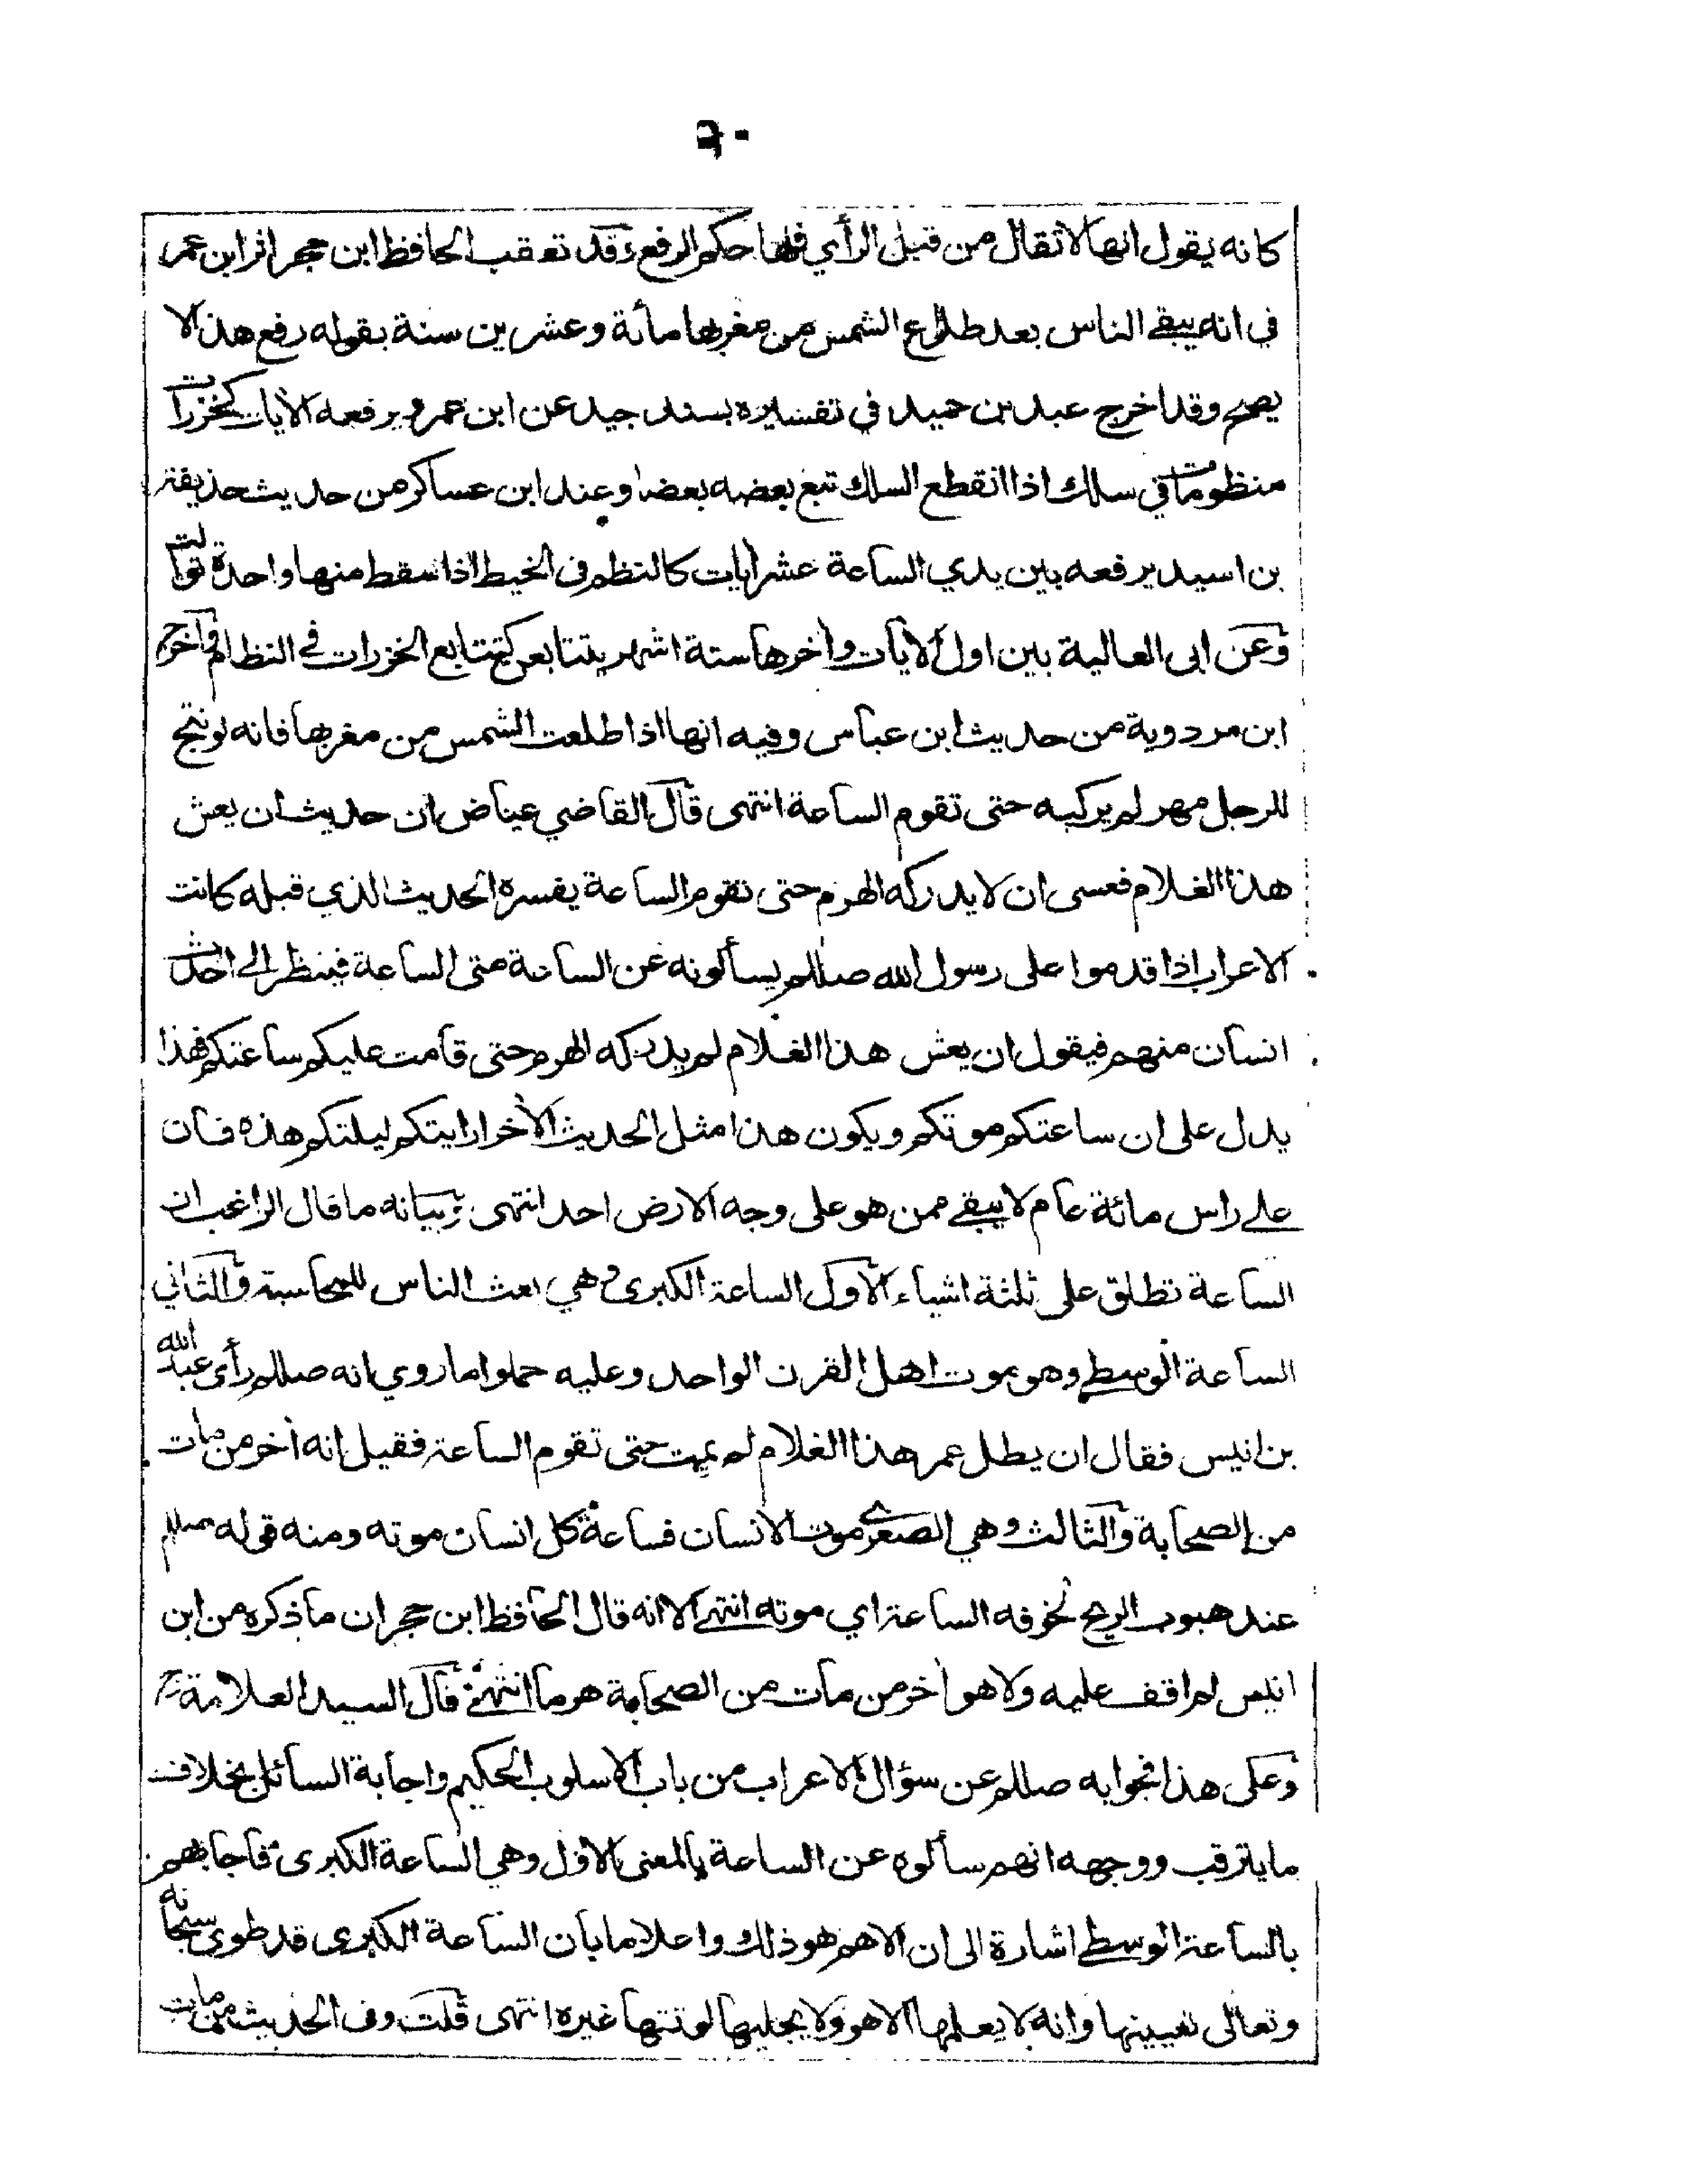 ٦٠
كانه يقول انها لا تقال من قبل الرأي فلها حكم الرفع وقد تعقب الحافظ ابن حجر اثر ابن عمر
في انه يبقى الناس بعد طلوع الشمس من مغربها مأئة وعشرين سنة بقوله رفع هذا لا
يصح وقد اخرج عبد بن حميد في تفسيره بسند جيد عن ابن عمرو يرفعه الآيات كخزرات
منظومات في سلك اذا انقطع السلك تبع بعضه بعضا وعند ابن عساكر من حديث حذيفة
بن اسيد يرفعه بين يدي الساعة عشر ايات كالنظم في الخيط اذا سقط منها واحدة توالت
وعن ابى العالية بين اول الآيات وأخرها ستة اشهر يتتابعن كتتابع الخزرات في النظام واخرج
ابن مردوية من حديث ابن عباس وفيه انها اذا طلعت الشمس من مغربها فانه لو نتج
للرجل مهر لم يركبه حتى تقوم الساعة انتهى قال القاضي عياض ان حديث ان يعش
هذا الغلام فعسى ان لا يدركه الهرم حتى تقوم الساعة يفسره الحديث الذي قبله كانت
الاعراب اذا قدموا على رسول الله صللم يسألونه عن الساعة متى الساعة فينظر الى احدث
انسان منهم فيقول ان يعش هذا الغلام لم يدركه الهرم حتى قامت عليكم ساعتكم فهذا
يدل على ان ساعتكم موتكم ويكون هذا مثل الحديث الأخر ارايتكم ليلتكم هذه فان
على راس مائة عام لا يبقى ممن هو على وجه الارض احد انتهى وبيانه ما قال الراغب ان
الساعة تطلق على ثلثة اشياء الاول الساعة الكبرى وهي بعث الناس للمحاسبة والثاني
الساعة الوسطى وهو موت اهل القرن الواحد وعليه حملوا ما روي انه صللم رأى عبد الله
بن انيس فقال ان يطل عمر هذا الغلام لم يمت حتى تقوم الساعة فقيل انه أخر من مات
من الصحابة والثالث وهي الصغرى موت الانسان فساعة كل انسان موته ومنه قوله صللم
عند هبوب الريح تخوفه الساعة اي موته انتهى الا انه قال الحافظ ابن حجر ان ما ذكره من ابن
انيس لم اقف عليه ولا هو أخر من مات من الصحابة هرما انتهى قال السيد العلامة رح
وعلى هذا فجوابه صللم عن سؤال الاعراب من باب الاسلوب الحكيم واجابة السائل بخلاف
ما يترقب ووجهه انهم سألوه عن الساعة بالمعنى الاول وهي الساعة الكبرى فاجابهم
بالساعة الوسطى اشارة الى ان الاهم هو ذلك واعلاما بان الساعة الكبرى قد طوى سبحانه
وتعالى تعيينها وانه لا يعلمها الا هو ولا يجليها لوقتها غيره انتهى قلت وفى الحديث من مات